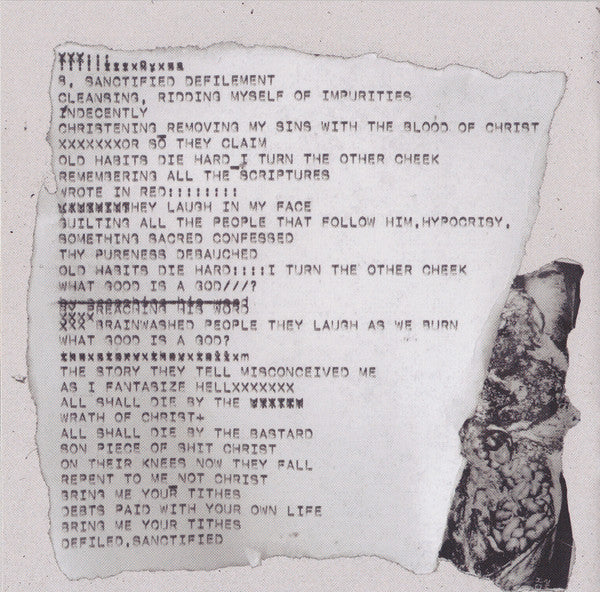 8. SANCTIFIED DEFILEMENT
CLEANSING, RIDDING MYSELF OF IMPURITIES
INDECENTLY
CHRISTENING REMOVING MY SINS WITH THE BLOOD OF CHRIST
XXXXXXXOR SO THEY CLAIM
OLD HABITS DIE HARD I TURN THE OTHER CHEEK
REMEMBERING ALL THE SCRIPTURES
WROTE IN RED!!!!!!!!!
THEY LAUGH IN MY FACE
GUILTING ALL THE PEOPLE THAT FOLLOW HIM,HYPOCRISY,
SOMETHING SACRED CONFESSED
THY PURENESS DEBAUCHED
OLD HABITS DIE HARD!!!!I TURN THE OTHER CHEEK
WHAT GOOD IS A GOD///?
By preaching his word
BY PREACHING HIS WORD
XXXX
XXX BRAINWASHED PEOPLE THEY LAUGH AS WE BURN
WHAT GOOD IS A GOD?
THE STORY THEY TELL MISCONCEIVED ME
AS I FANTASIZE HELLXXXXXXX
ALL SHALL DIE BY THE
WRATH OF CHRIST+
ALL SHALL DIE BY THE BASTARD
SON PIECE OF SHIT CHRIST
ON THEIR KNEES NOW THEY FALL
REPENT TO ME NOT CHRIST
BRING ME YOUR TITHES
DEBTS PAID WITH YOUR OWN LIFE
BRING ME YOUR TITHES
DEFILED,SANCTIFIED